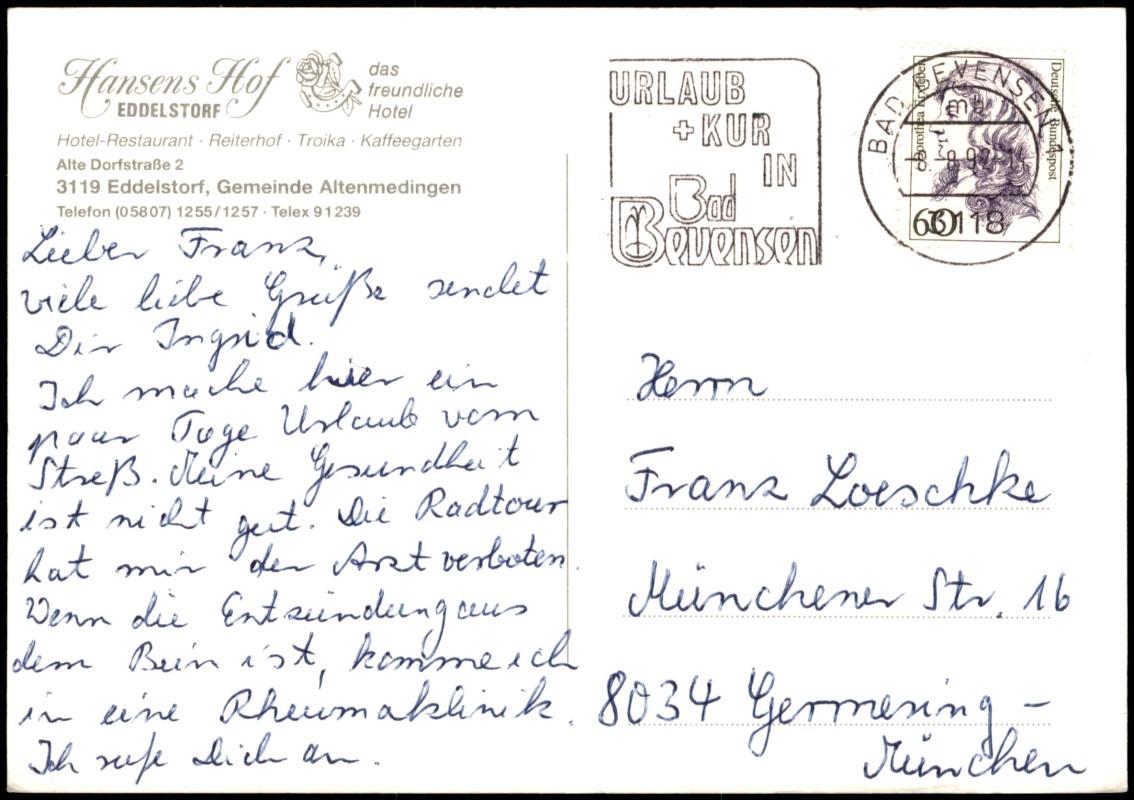 Hansens Hof
EDDELSTORF
das
freundliche
Hotel
Hotel-Restaurant · Reiterhof · Troika · Kaffeegarten
Alte Dorfstraße 2
3119 Eddelstorf, Gemeinde Altenmedingen
Telefon (05807) 1255/1257 · Telex 91239
Lieber Franz,
viele liebe Grüße sendet
Dir Ingrid.
Ich mache hier ein
paar Tage Urlaub vom
Streß. Meine Gesundheit
ist nicht gut. Die Radtour
hat mir der Arzt verboten.
Wenn die Entzündung aus
dem Bein ist, komme ich
in eine Rheumaklinik.
Ich rufe Dich an.
URLAUB
+ KUR
IN
Bad
Bevensen
BAD BEVENSEN 1
m
3118
Dorothea Erxleben
Deutsche Bundespost
60
Herrn
Franz Loeschke
Münchener Str. 16
8034 Germering -
München